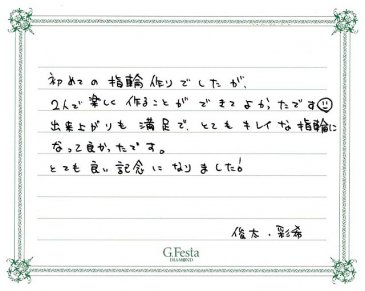 初めての指輪作りでしたが、
2人で楽しく作ることができてよかったです☺
出来上がりも満足で、とてもキレイな指輪に
なって良かったです。
とても良い記念になりました!
俊太・彩希
G.Festa
DIAMOND